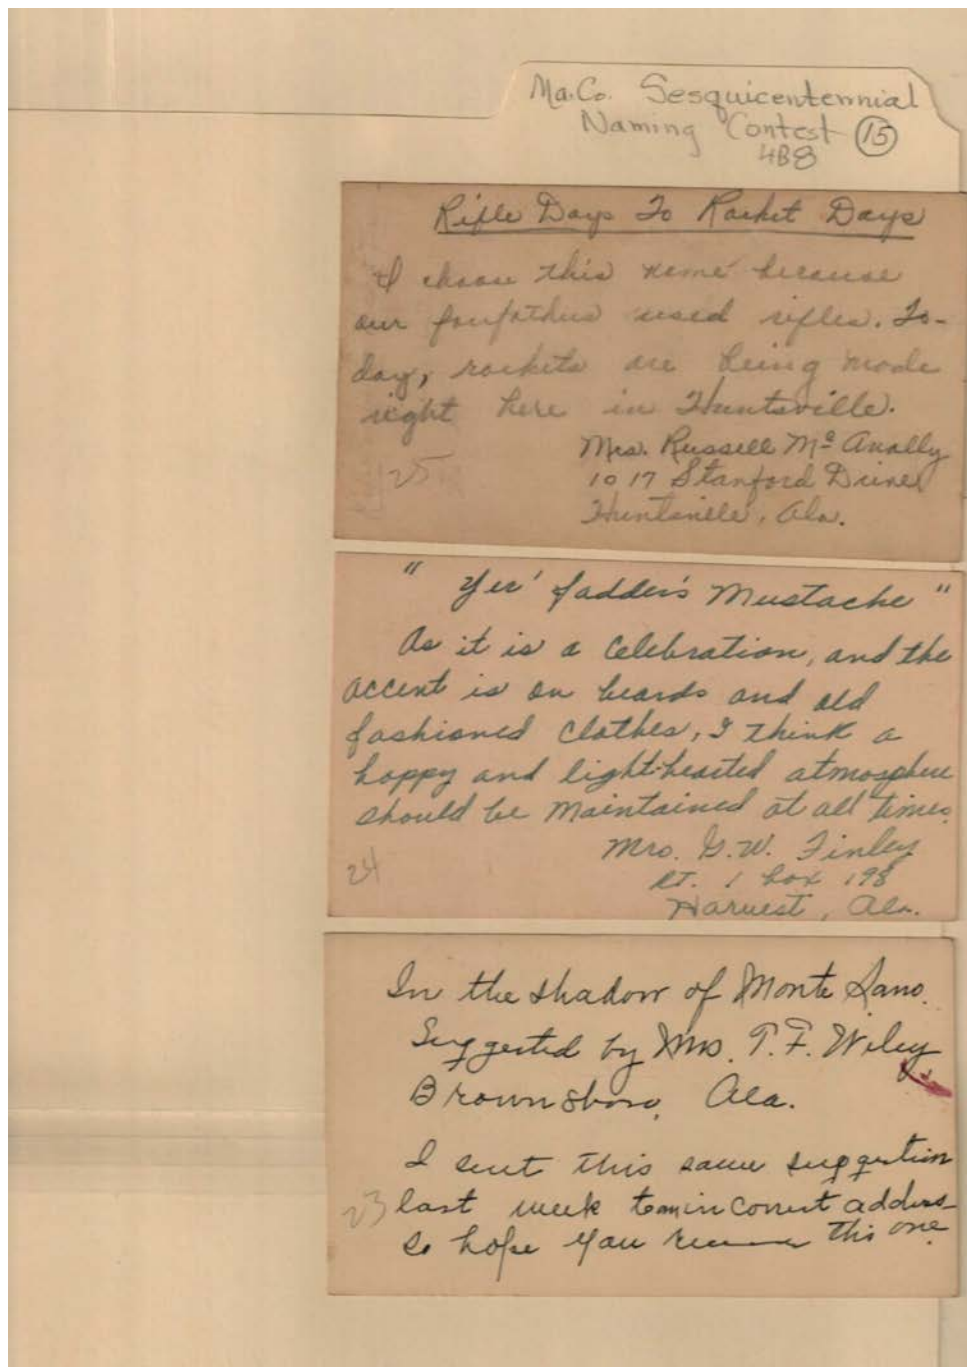 Ma. Co. Sesquicentennial
Naming Contest (15)
4B8
Rifle Days To Rocket Days
I choose this name because
our forefathers used rifles. To-
day, rockets are being made
right here in Huntsville.
Mrs. Russell Mc Anally
1017 Stanford Drive
Huntsville, Ala.
25
"Yer' fadder's Mustache"
As it is a celebration, and the
accent is on beards and old
fashioned clothes, I think a
happy and light-hearted atmosphere
should be maintained at all times.
Mrs. G. W. Finley
Rt. 1 Box 198
Harvest, Ala.
24
In the shadow of Monte Sano.
Suggested by Mrs. T. F. Wiley
Brownsboro, Ala.
I sent this same suggestion
last week
so hope you receive this one
23